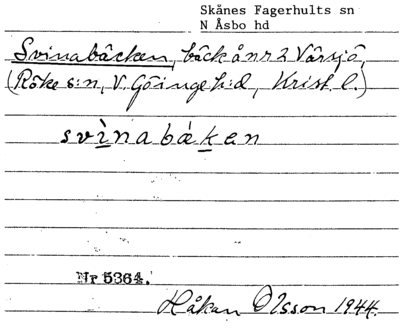 Skånes Fagerhults sn
N Åsbo hd
Svinabäcken, bäck å nr 2 Vårsjö,
(Röke s:n, V. Göinge h:d, Krist. l.)
svìnabǽkan
Nr 5364.
Håkan Olsson 1944.